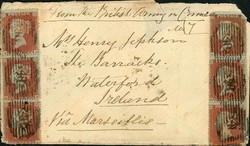 From the British Army in Crimea
No 7
Mrs Henry Jephson
The Barracks.
Waterford
Ireland
Via Marseilles